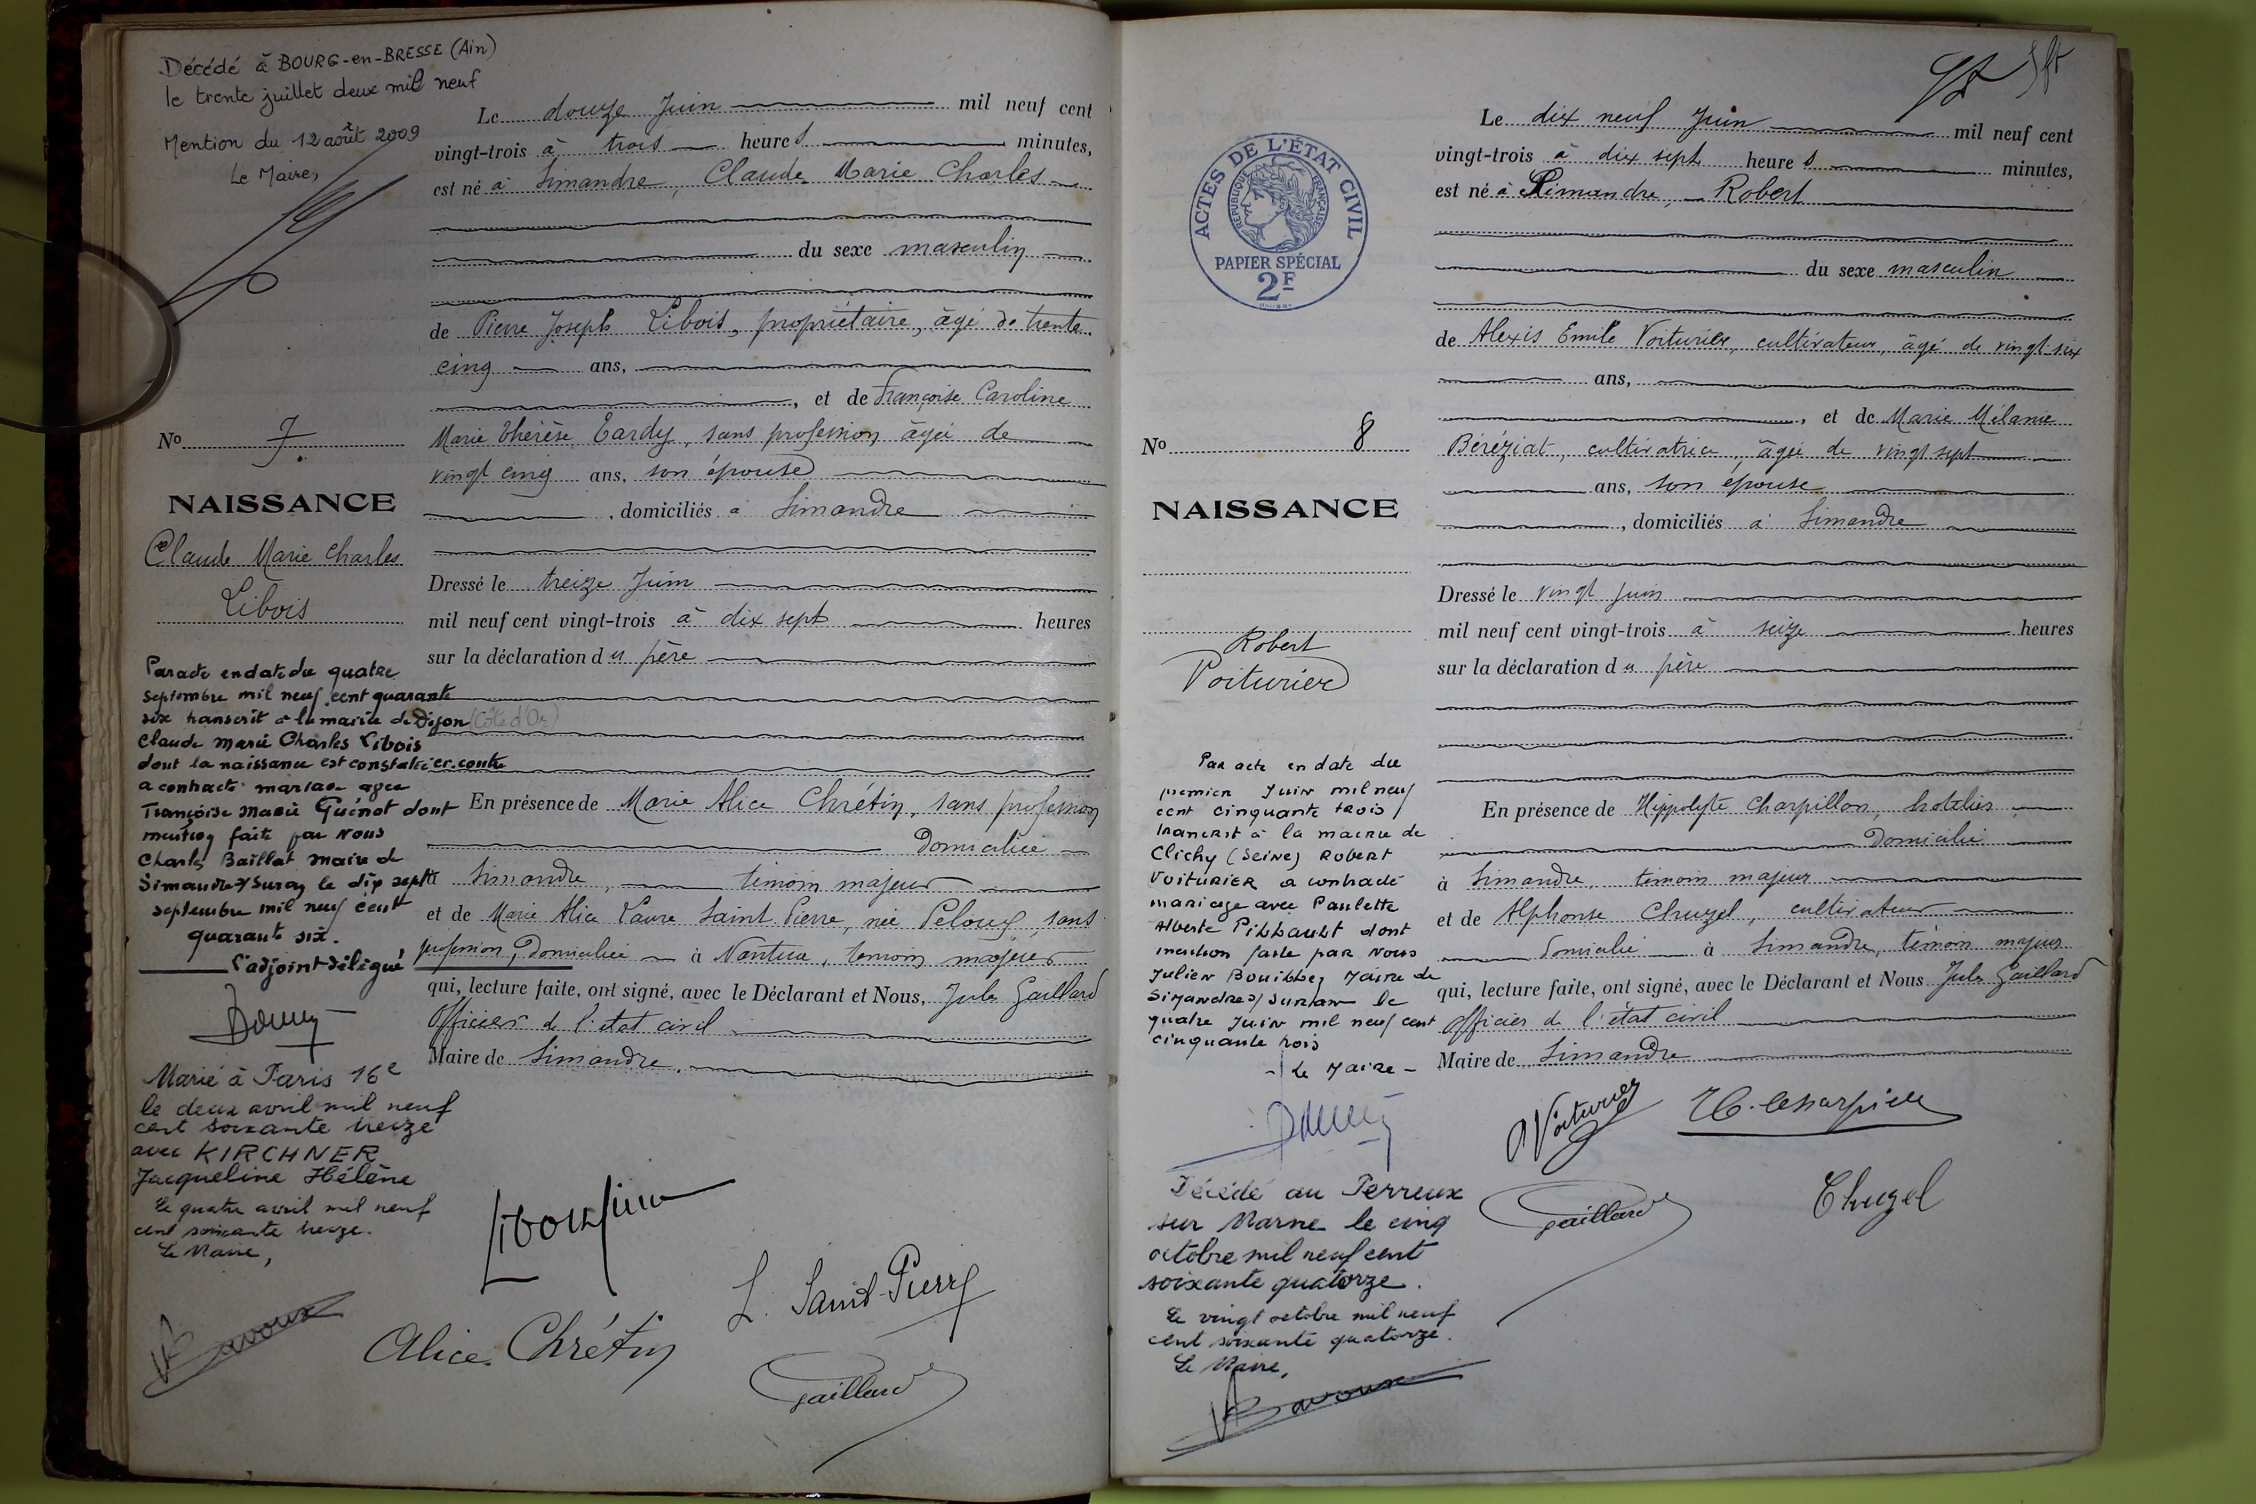 Décédé à BOURG-en-BRESSE (Ain)
le trente juillet deux mil neuf
Mention du 12 août 2009
Le Maire,
Le douze Juin mil neuf cent
vingt-trois à trois heures minutes,
est né à Simandre, Claude Marie Charles
du sexe masculin
de Pierre Joseph Libois, propriétaire, âgé de trente
cinq ans,
, et de Françoise Caroline
Marie Thérèse Tardy, sans profession âgée de
vingt cinq ans, son épouse
, domiciliés à Simandre
Dressé le treize Juin
mil neuf cent vingt-trois à dix sept heures
sur la déclaration du père
En présence de Marie Alice Chrétin, sans profession
Domiciliée
à Simandre, témoin majeur
et de Marie Alice Laure Saint-Pierre, née Peloux, sans
profession, Domiciliée à Nantua, témoin majeur
qui, lecture faite, ont signé, avec le Déclarant et Nous, Jules Gaillard
Officier de l'état civil
Maire de Simandre.
No 7.
NAISSANCE
Claude Marie Charles
Libois
Par acte en date du quatre
septembre mil neuf cent quarante
six transcrit à la mairie de Dijon (Côte d'Or)
Claude Marie Charles Libois
dont la naissance est constatée ci-contre
a contracté mariage avec
Françoise Marie Guénot dont
mention faite par Nous
Charles Baillat maire de
Simandre s/ Suran le dix sept
septembre mil neuf cent
quarante six.
L'adjoint délégué
Marié à Paris 16e
le deux avril mil neuf
cent soixante treize
avec KIRCHNER
Jacqueline Hélène
Le quatre avril mil neuf
cent soixante treize.
Le Maire,
Bavoux
L. Saint-Pierre
Alice Chrétin
Gaillard
ACTES DE L'ÉTAT CIVIL
RÉPUBLIQUE FRANÇAISE
PAPIER SPÉCIAL
2F
Le dix neuf Juin mil neuf cent
vingt-trois à dix sept heures minutes,
est né à Simandre, Robert
du sexe masculin
de Alexis Emile Voiturier, cultivateur, âgé de vingt six
ans,
, et de Marie Mélanie
Béréziat, cultivatrice, âgée de vingt sept
ans, son épouse
, domiciliés à Simandre
Dressé le vingt Juin
mil neuf cent vingt-trois à seize heures
sur la déclaration du père
En présence de Hippolyte Charpillon, hotelier,
Domicilié
à Simandre, témoin majeur
et de Alphonse Chuzel, cultivateur
domicilié à Simandre, témoin majeur
qui, lecture faite, ont signé, avec le Déclarant et Nous Jules Gaillard
Officier de l'état civil
Maire de Simandre
No 8
NAISSANCE
Robert
Voiturier
Par acte en date du
premier Juin mil neuf
cent cinquante trois
transcrit à la mairie de
Clichy (Seine) Robert
VOITURIER a contracté
mariage avec Paulette
Alberte dont
mention faite par Nous
Julien Maire de
Simandre s/ Suran le
quatre Juin mil neuf cent
cinquante trois
- Le Maire -
Décédé au Perreux
sur Marne le cinq
octobre mil neuf cent
soixante quatorze.
Le vingt octobre mil neuf
cent soixante quatorze.
Le Maire,
Bavoux
Voiturier
Gaillard
Chuzel